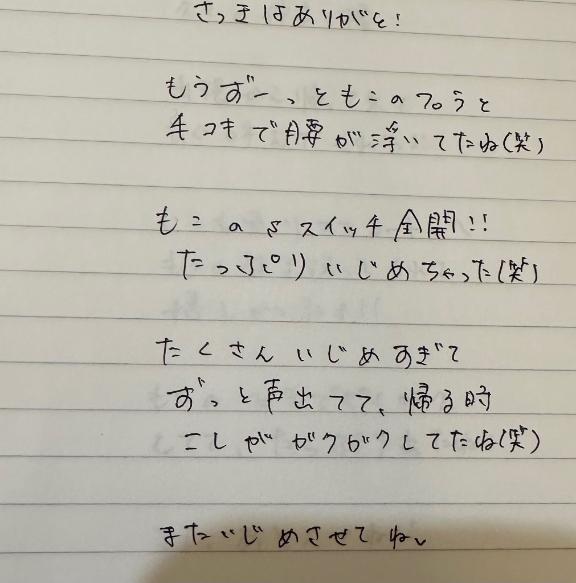 さっきはありがと!
もうずーっともこのフ。うと
手コキで腰が浮いてたね(笑)
もこのSスイッチ全開!!
たっぷりいじめちゃった(笑)
たくさんいじめすぎて
ずっと声出てて、帰る時
こしがガクガクしてたね(笑)
またいじめさせてね